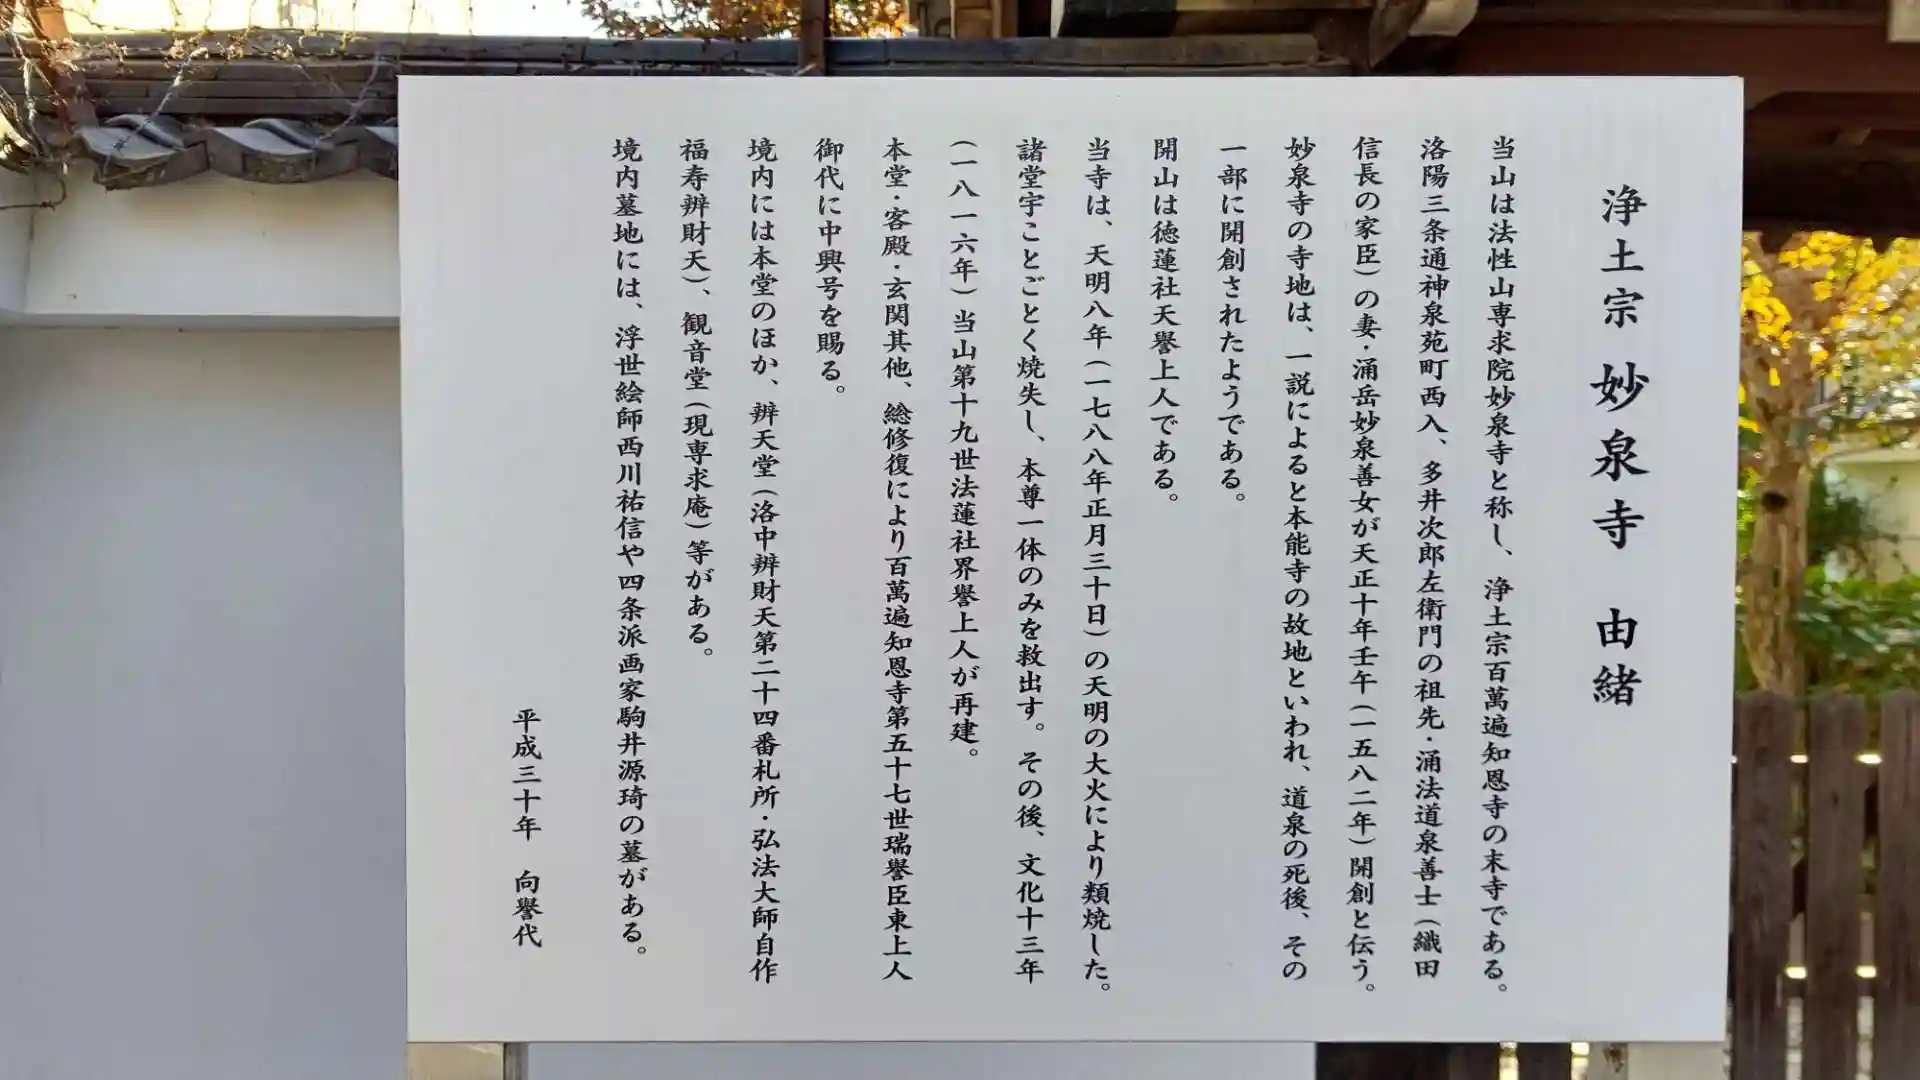 浄土宗 妙泉寺 由緒
当山は法性山専求院妙泉寺と称し、浄土宗百萬遍知恩寺の末寺である。
洛陽三条通神泉苑町西入、多井次郎左衛門の祖先・涌法道泉善士(織田
信長の家臣)の妻・涌岳妙泉善女が天正十年壬午(一五八二年)開創と伝う。
妙泉寺の寺地は、一説によると本能寺の故地といわれ、道泉の死後、その
一部に開創されたようである。
開山は徳蓮社天譽上人である。
当寺は、天明八年(一七八八年正月三十日)の天明の大火により類焼した。
諸堂宇ことごとく焼失し、本尊一体のみを救出す。その後、文化十三年
(一八一六年)当山第十九世法蓮社界譽上人が再建。
本堂・客殿・玄関其他、総修復により百萬遍知恩寺第五十七世瑞譽臣東上人
御代に中興号を賜る。
境内には本堂のほか、辨天堂(洛中辨財天第二十四番札所・弘法大師自作
福寿辨財天)、観音堂(現専求庵)等がある。
境内墓地には、浮世絵師西川祐信や四条派画家駒井源琦の墓がある。
平成三十年 向譽代